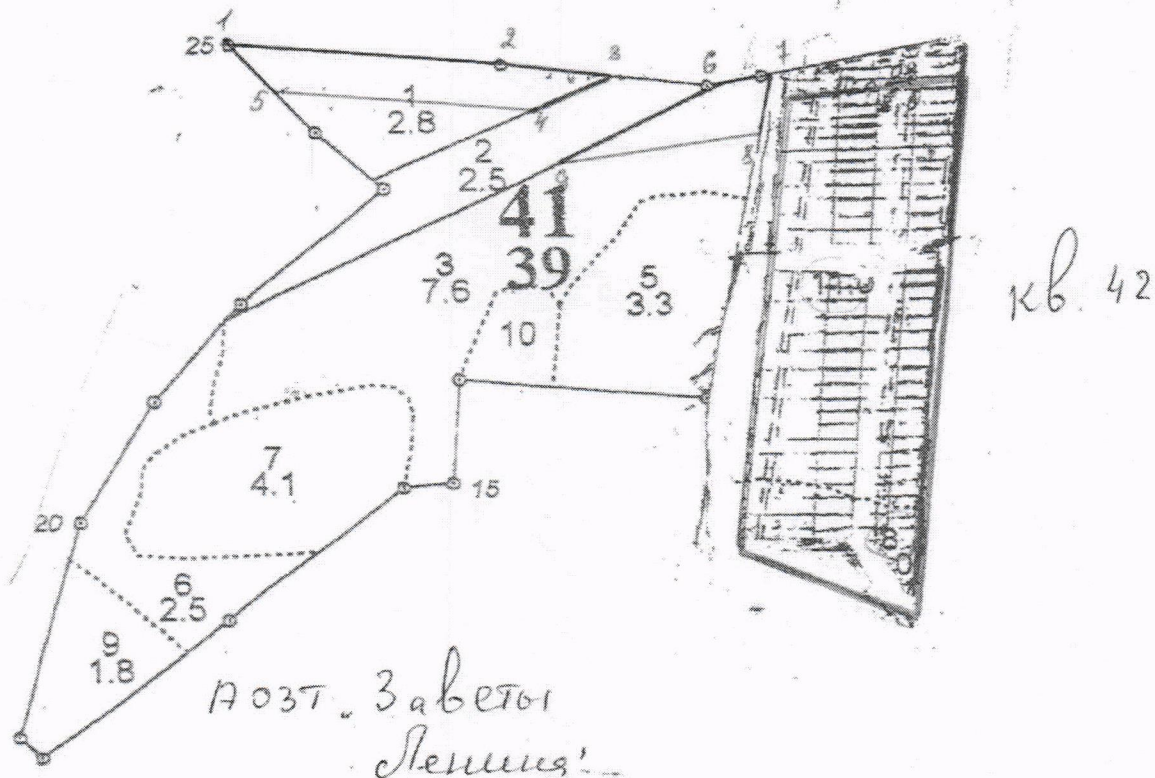 1
25
2
3
6
7
5
1
2.8
4
2
2.5
9
8
41
39
3
7.6
5
3.3
10
кв. 42
7
4.1
15
20
6
2.5
8
9
1.8
АОЗТ. Заветы
Ленина"